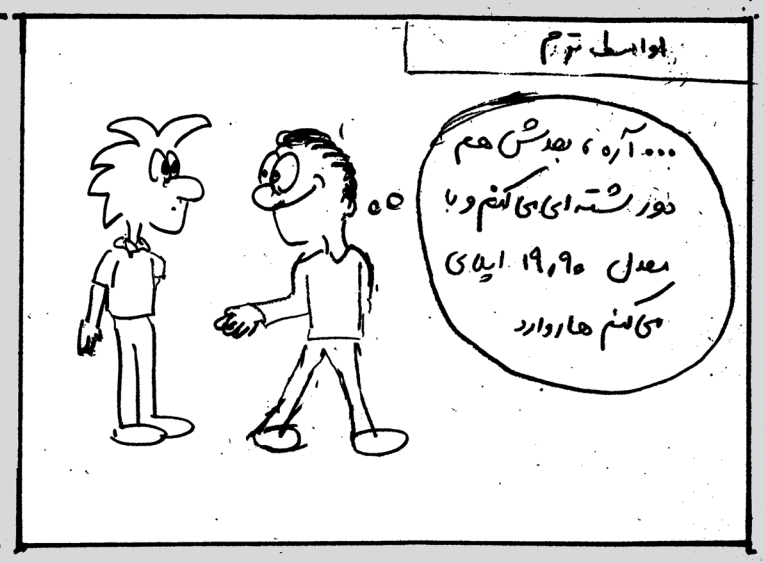 اواسط ترم
... آره، بعدش هم
دورشته‌ای می‌کنم و با
معدل ۱۹،۹۰ اپلای
می‌کنم هاروارد